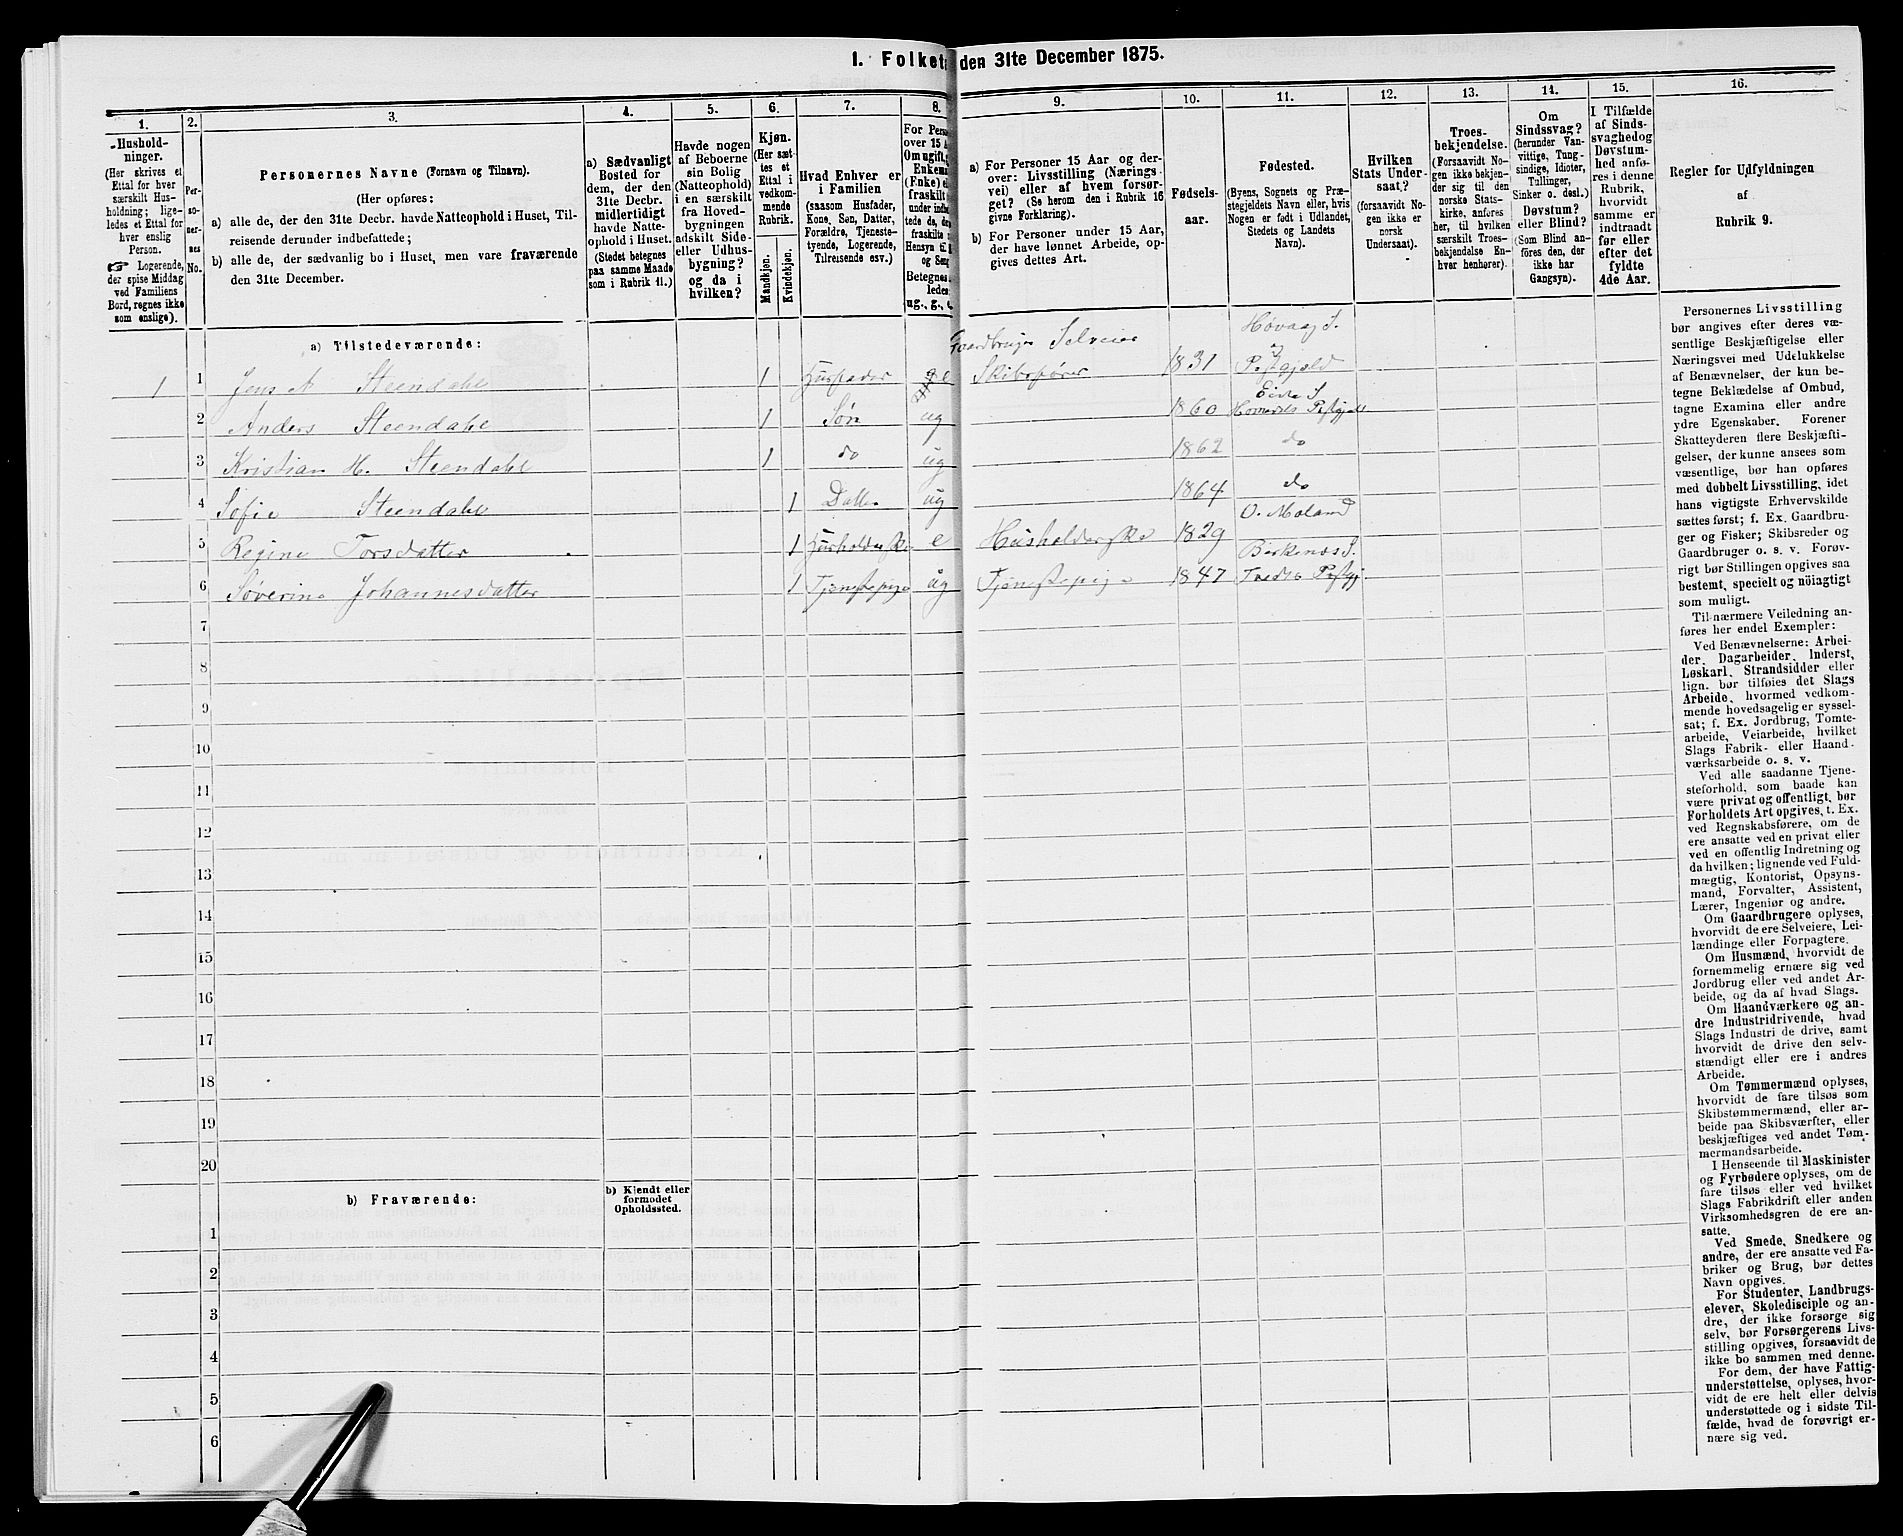 1. Folket den 31te December 1875.
1.
Hushold-
ninger.
(Her skrives et
Ettal for hver
særskilt Hus-
holdning; lige-
ledes et Ettal for
hver enslig
Person.
☞ Logerende,
der spise Middag
ved Familiens
Bord, regnes ikke
som enslige).
2.
Per-
so-
ner-
nes
No.
3.
Personernes Navne (Fornavn og Tilnavn).
(Her opføres:
a) alle de, der den 31te Decbr. havde Natteophold i Huset, Til-
reisende derunder indbefattede;
b) alle de, der sædvanlig bo i Huset, men vare fraværende
den 31te December.
4.
a) Sædvanligt
Bosted for
dem, der den
31te Decbr.
midlertidigt
havde Natte-
ophold i Huset.
(Stedet betegnes
paa samme Maade
som i Rubrik 11.)
5.
Havde nogen
af Beboerne
sin Bolig
(Natteophold)
i en særskilt
fra Hoved-
bygningen
adskilt Side-
eller Udhus-
bygning?
og da i
hvilken?
6.
Kjøn.
(Her sæt-
tes et
Ettal i
vedkom-
mende
Rubrik.
Mandkjøn.
Kvindekjøn.
7.
Hvad Enhver er
i Familien
(saasom Husfader,
Kone, Søn, Datter,
Forældre, Tjeneste-
tyende, Logerende,
Tilreisende osv.)
8.
For Pers
over 15 A
Om ugift,
Enkem
(Enke) e
fraskilt
under indb
tede de, de
fraskilte
Hensyn til
og Seng
Betegnes
ledes
ug., g., e
9.
a) For Personer 15 Aar og der-
over: Livsstilling (Nærings-
vei) eller af hvem forsør-
get? (Se herom den i Rubrik 16
givne Forklaring).
b) For Personer under 15 Aar,
der have lønnet Arbeide, op-
gives dettes Art.
10.
Fødsels-
aar.
11.
Fødested.
(Byens, Sognets og Præ-
stegjeldets Navn eller, hvis
Nogen er født i Udlandet,
Stedets og Landets
Navn).
12.
Hvilken
Stats Under-
saat?
(forsaavidt No-
gen ikke er
norsk
Undersaat).
13.
Troes-
bekjendelse.
(Forsaavidt No-
gen ikke bekjen-
der sig til den
norske Stats-
kirke, anføres
her, til hvilken
særskilt Troes-
bekjendelse En-
hver henhører).
14.
Om
Sindssvag?
(herunder Van-
vittige, Tung-
sindige, Idioter,
Tullinger,
Sinker o. desl.)
Døvstum?
eller Blind?
(Som Blind an-
føres den, der
ikke har
Gangsyn).
15.
I Tilfælde
af Sinds-
svaghed og
Døvstum-
hed anfø-
res i denne
Rubrik,
hvorvidt
samme er
indtraadt
før eller
efter det
fyldte
4de Aar.
16.
Regler for Udfyldningen
af
Rubrik 9.
a) Tilstedeværende:
1 1 Jens A Steendahl 1 Husfader e Gaardbruger Selveier Skibsfører 1831 Høvaag S. og Pstgjeld
2 Anders Steendahl 1 Søn ug 1860 Eide S Homedals Pstgjeld
3 Kristian H. Steendahl 1 do ug 1862 do
4 Sofie Steendahl 1 Datter ug 1864 do
5 Regine Torsdatter 1 Husholderske e Husholderske 1829 O. Moland
6 Søverine Johannesdatter 1 Tjenestepige ug Tjenestepige 1847 Birkenes S. Tvedts Pstgj
7
8
9
10
11
12
13
14
15
16
17
18
19
20
b) Fraværende:
b) Kjendt eller
formodet
Opholdssted.
1
2
3
4
5
6
Personernes Livsstilling
bør angives efter deres væ-
sentlige Beskjæftigelse eller
Næringsvei med Udelukkelse
af Benævnelser, der kun be-
tegne Beklædelse af Ombud,
tagne Examina eller andre
ydre Egenskaber. Forener
Skatteyderen flere Beskjæfti-
gelser, der kunne ansees som
væsentlige, bør han opføres
med dobbelt Livsstilling, idet
hans vigtigste Erhvervskilde
sættes først; f. Ex. Gaardbru-
ger og Fisker; Skibsreder og
Gaardbruger o. s. v. Forøv-
rigt bør Stillingen opgives saa
bestemt, specielt og nøiagtigt
som muligt.
Til nærmere Veiledning an-
føres her endel Exempler:
Ved Benævnelserne: Arbei-
der, Dagarbeider, Inderst,
Løskarl, Strandsidder eller
lign. bør tilføies det Slags
Arbeide, hvormed vedkom-
mende hovedsagelig er syssel-
sat; f. Ex. Jordbrug, Tomte-
arbeide, Veiarbeide, hvilket
Slags Fabrik- eller Haand-
værksarbeide o. s. v.
Ved alle saadanne Tjene-
steforhold, som baade kan
være privat og offentligt, bør
Forholdets Art opgives, t. Ex.
ved Regnskabsførere, om de
ere ansatte ved en privat eller
ved en offentlig Indretning og
da hvilken; lignende ved Fuld-
mægtig, Kontorist, Opsyns-
mand, Forvalter, Assistent,
Lærer, Ingeniør og andre.
Om Gaardbrugere oplyses,
hvorvidt de ere Selveiere, Lei-
lændinge eller Forpagtere.
Om Husmænd, hvorvidt de
fornemmelig ernære sig ved
Jordbrug eller ved andet Ar-
beide, og da af hvad Slags.
Om Haandværkere og an-
dre Industridrivende, hvad
Slags Industri de drive, samt
hvorvidt de drive den selv-
stændigt eller ere i andres
Arbeide.
Om Tømmermænd oplyses,
hvorvidt de fare tilsøs som
Skibstømmermænd, eller ar-
beide paa Skibsværfter, eller
beskjæftiges ved andet Tøm-
mermandsarbeide.
I Henseende til Maskinister
og Fyrbødere oplyses, om de
fare tilsøs eller ved hvilket
Slags Fabrikdrift eller anden
Virksomhedsgren de ere an-
satte.
Ved Smede, Snedkere og
andre, der ere ansatte ved Fa-
briker og Brug, bør dettes
Navn opgives.
For Studenter, Landbrugs-
elever, Skoledisciple og an-
dre, der ikke forsørge sig
selv, bør Forsørgerens Livs-
stilling opgives, forsaavidt de
ikke bo sammen med denne.
For dem, der have Fattig-
understøttelse, oplyses, hvor-
vidt de ere helt eller delvis
understøttede og i sidste Til-
fælde, hvad de forøvrigt er-
nære sig ved.